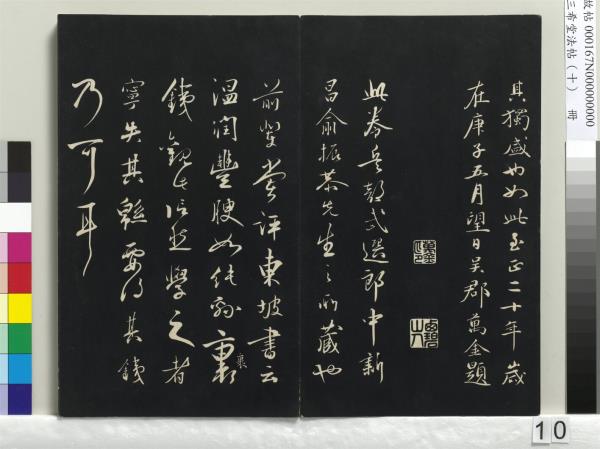 其獨盛也如此至正二十年歲
在庚子五月望日吳郡萬金題
此卷兵部武選郎中新
昌俞振恭先生之所藏也
前輩嘗評東坡書云
溫潤豐腴如純綿裹
裹
鐵觀此信然學之者
寧失其綿要得其鐵
乃可耳
故帖 000167N000000000
三希堂法帖（十） 冊
10